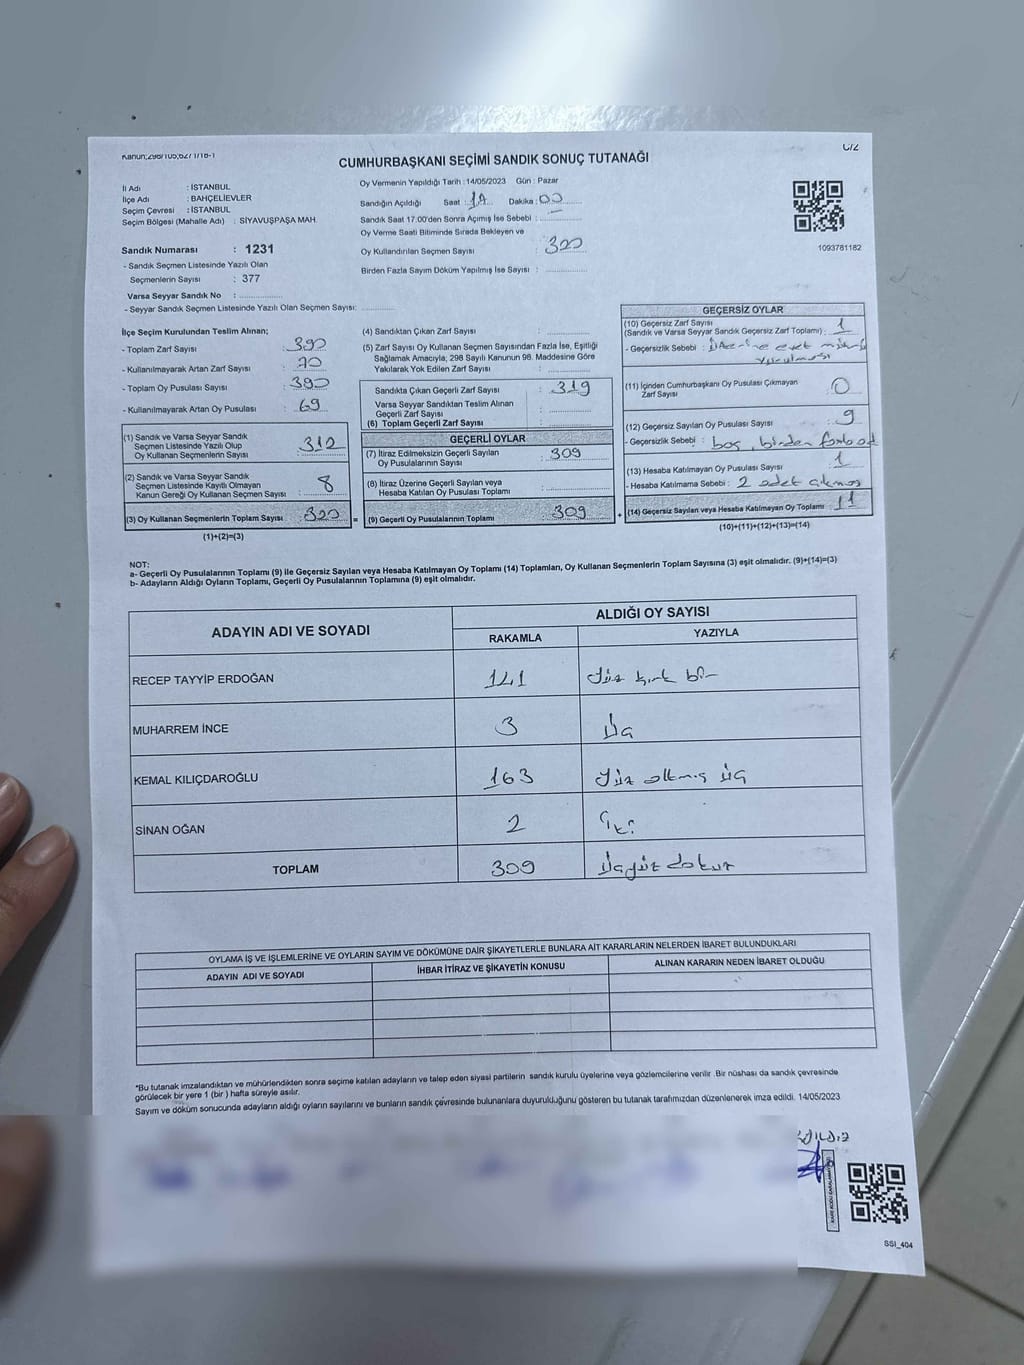 Kanun;298/105;6271/18-1
C/2
CUMHURBAŞKANI SEÇİMİ SANDIK SONUÇ TUTANAĞI
İl Adı : İSTANBUL
İlçe Adı : BAHÇELİEVLER
Seçim Çevresi : İSTANBUL
Seçim Bölgesi (Mahalle Adı) : SİYAVUŞPAŞA MAH.
Sandık Numarası : 1231
- Sandık Seçmen Listesinde Yazılı Olan
Seçmenlerin Sayısı : 377
Varsa Seyyar Sandık No :
- Seyyar Sandık Seçmen Listesinde Yazılı Olan Seçmen Sayısı:
Oy Vermenin Yapıldığı Tarih : 14/05/2023 Gün : Pazar
Sandığın Açıldığı Saat : Dakika : 00
Sandık Saat 17:00'den Sonra Açımış İse Sebebi :
Oy Verme Saati Bitiminde Sırada Bekleyen ve
Oy Kullandırılan Seçmen Sayısı : 320
Birden Fazla Sayım Döküm Yapılmış İse Sayısı :
1093781182
İlçe Seçim Kurulundan Teslim Alınan;
- Toplam Zarf Sayısı : 390
- Kullanılmayarak Artan Zarf Sayısı : 70
- Toplam Oy Pusulası Sayısı : 390
- Kullanılmayarak Artan Oy Pusulası : 69
(1) Sandık ve Varsa Seyyar Sandık
Seçmen Listesinde Yazılı Olup
Oy Kullanan Seçmenlerin Sayısı : 312
(2) Sandık ve Varsa Seyyar Sandık
Seçmen Listesinde Kayıtlı Olmayan
Kanun Gereği Oy Kullanan Seçmen Sayısı : 8
(3) Oy Kullanan Seçmenlerin Toplam Sayısı : 320
(1)+(2)=(3)
(4) Sandıktan Çıkan Zarf Sayısı :
(5) Zarf Sayısı Oy Kullanan Seçmen Sayısından Fazla İse, Eşitliği
Sağlamak Amacıyla; 298 Sayılı Kanunun 98. Maddesine Göre
Yakılarak Yok Edilen Zarf Sayısı :
Sandıkta Çıkan Geçerli Zarf Sayısı : 319
Varsa Seyyar Sandıktan Teslim Alınan
Geçerli Zarf Sayısı :
(6) Toplam Geçerli Zarf Sayısı :
GEÇERLİ OYLAR
(7) İtiraz Edilmeksizin Geçerli Sayılan
Oy Pusulalarının Sayısı : 309
(8) İtiraz Üzerine Geçerli Sayılan veya
Hesaba Katılan Oy Pusulası Toplamı :
= (9) Geçerli Oy Pusulalarının Toplamı : 309
GEÇERSİZ OYLAR
(10) Geçersiz Zarf Sayısı
(Sandık ve Varsa Seyyar Sandık Geçersiz Zarf Toplamı) : 1
- Geçersizlik Sebebi : Üzerine evet mührü
vurulması
(11) İçinden Cumhurbaşkanı Oy Pusulası Çıkmayan
Zarf Sayısı : 0
(12) Geçersiz Sayılan Oy Pusulası Sayısı : 9
- Geçersizlik Sebebi : boş, birden fazla
(13) Hesaba Katılmayan Oy Pusulası Sayısı : 1
- Hesaba Katılmama Sebebi : 2 adet çıkması
+ (14) Geçersiz Sayılan veya Hesaba Katılmayan Oy Toplamı : 11
(10)+(11)+(12)+(13)=(14)
NOT:
a- Geçerli Oy Pusulasının Toplamı (9) ile Geçersiz Sayılan veya Hesaba Katılmayan Oy Toplamı (14) Toplamları, Oy Kullanan Seçmenlerin Toplam Sayısına (3) eşit olmalıdır. (9)+(14)=(3)
b- Adayların Aldığı Oyların Toplamı, Geçerli Oy Pusulalarının Toplamına (9) eşit olmalıdır.
ADAYIN ADI VE SOYADI
ALDIĞI OY SAYISI
RAKAMLA YAZIYLA
RECEP TAYYİP ERDOĞAN 141 Yüz kırk bir
MUHARREM İNCE 3 Üç
KEMAL KILIÇDAROĞLU 163 Yüz altmış üç
SİNAN OĞAN 2 İki
TOPLAM 309 Üçyüz dokuz
OYLAMA İŞ VE İŞLEMLERİNE VE OYLARIN SAYIM VE DÖKÜMÜNE DAİR ŞİKAYETLERLE BUNLARA AİT KARARLARIN NELERDEN İBARET BULUNDUKLARI
ADAYIN ADI VE SOYADI İHBAR İTİRAZ VE ŞİKAYETİN KONUSU ALINAN KARARIN NEDEN İBARET OLDUĞU
*Bu tutanak imzalandıktan ve mühürlendikten sonra seçime katılan adayların ve talep eden siyasi partilerin sandık kurulu üyelerine veya gözlemcilerine verilir. Bir nüshası da sandık çevresinde
görülecek bir yere 1 (bir) hafta süreyle asılır.
Sayım ve döküm sonucunda adayların aldığı oyların sayılarını ve bunların sandık çevresinde bulunanlara duyurulduğunu gösteren bu tutanak tarafımızdan düzenlenerek imza edildi. 14/05/2023
SSI_404